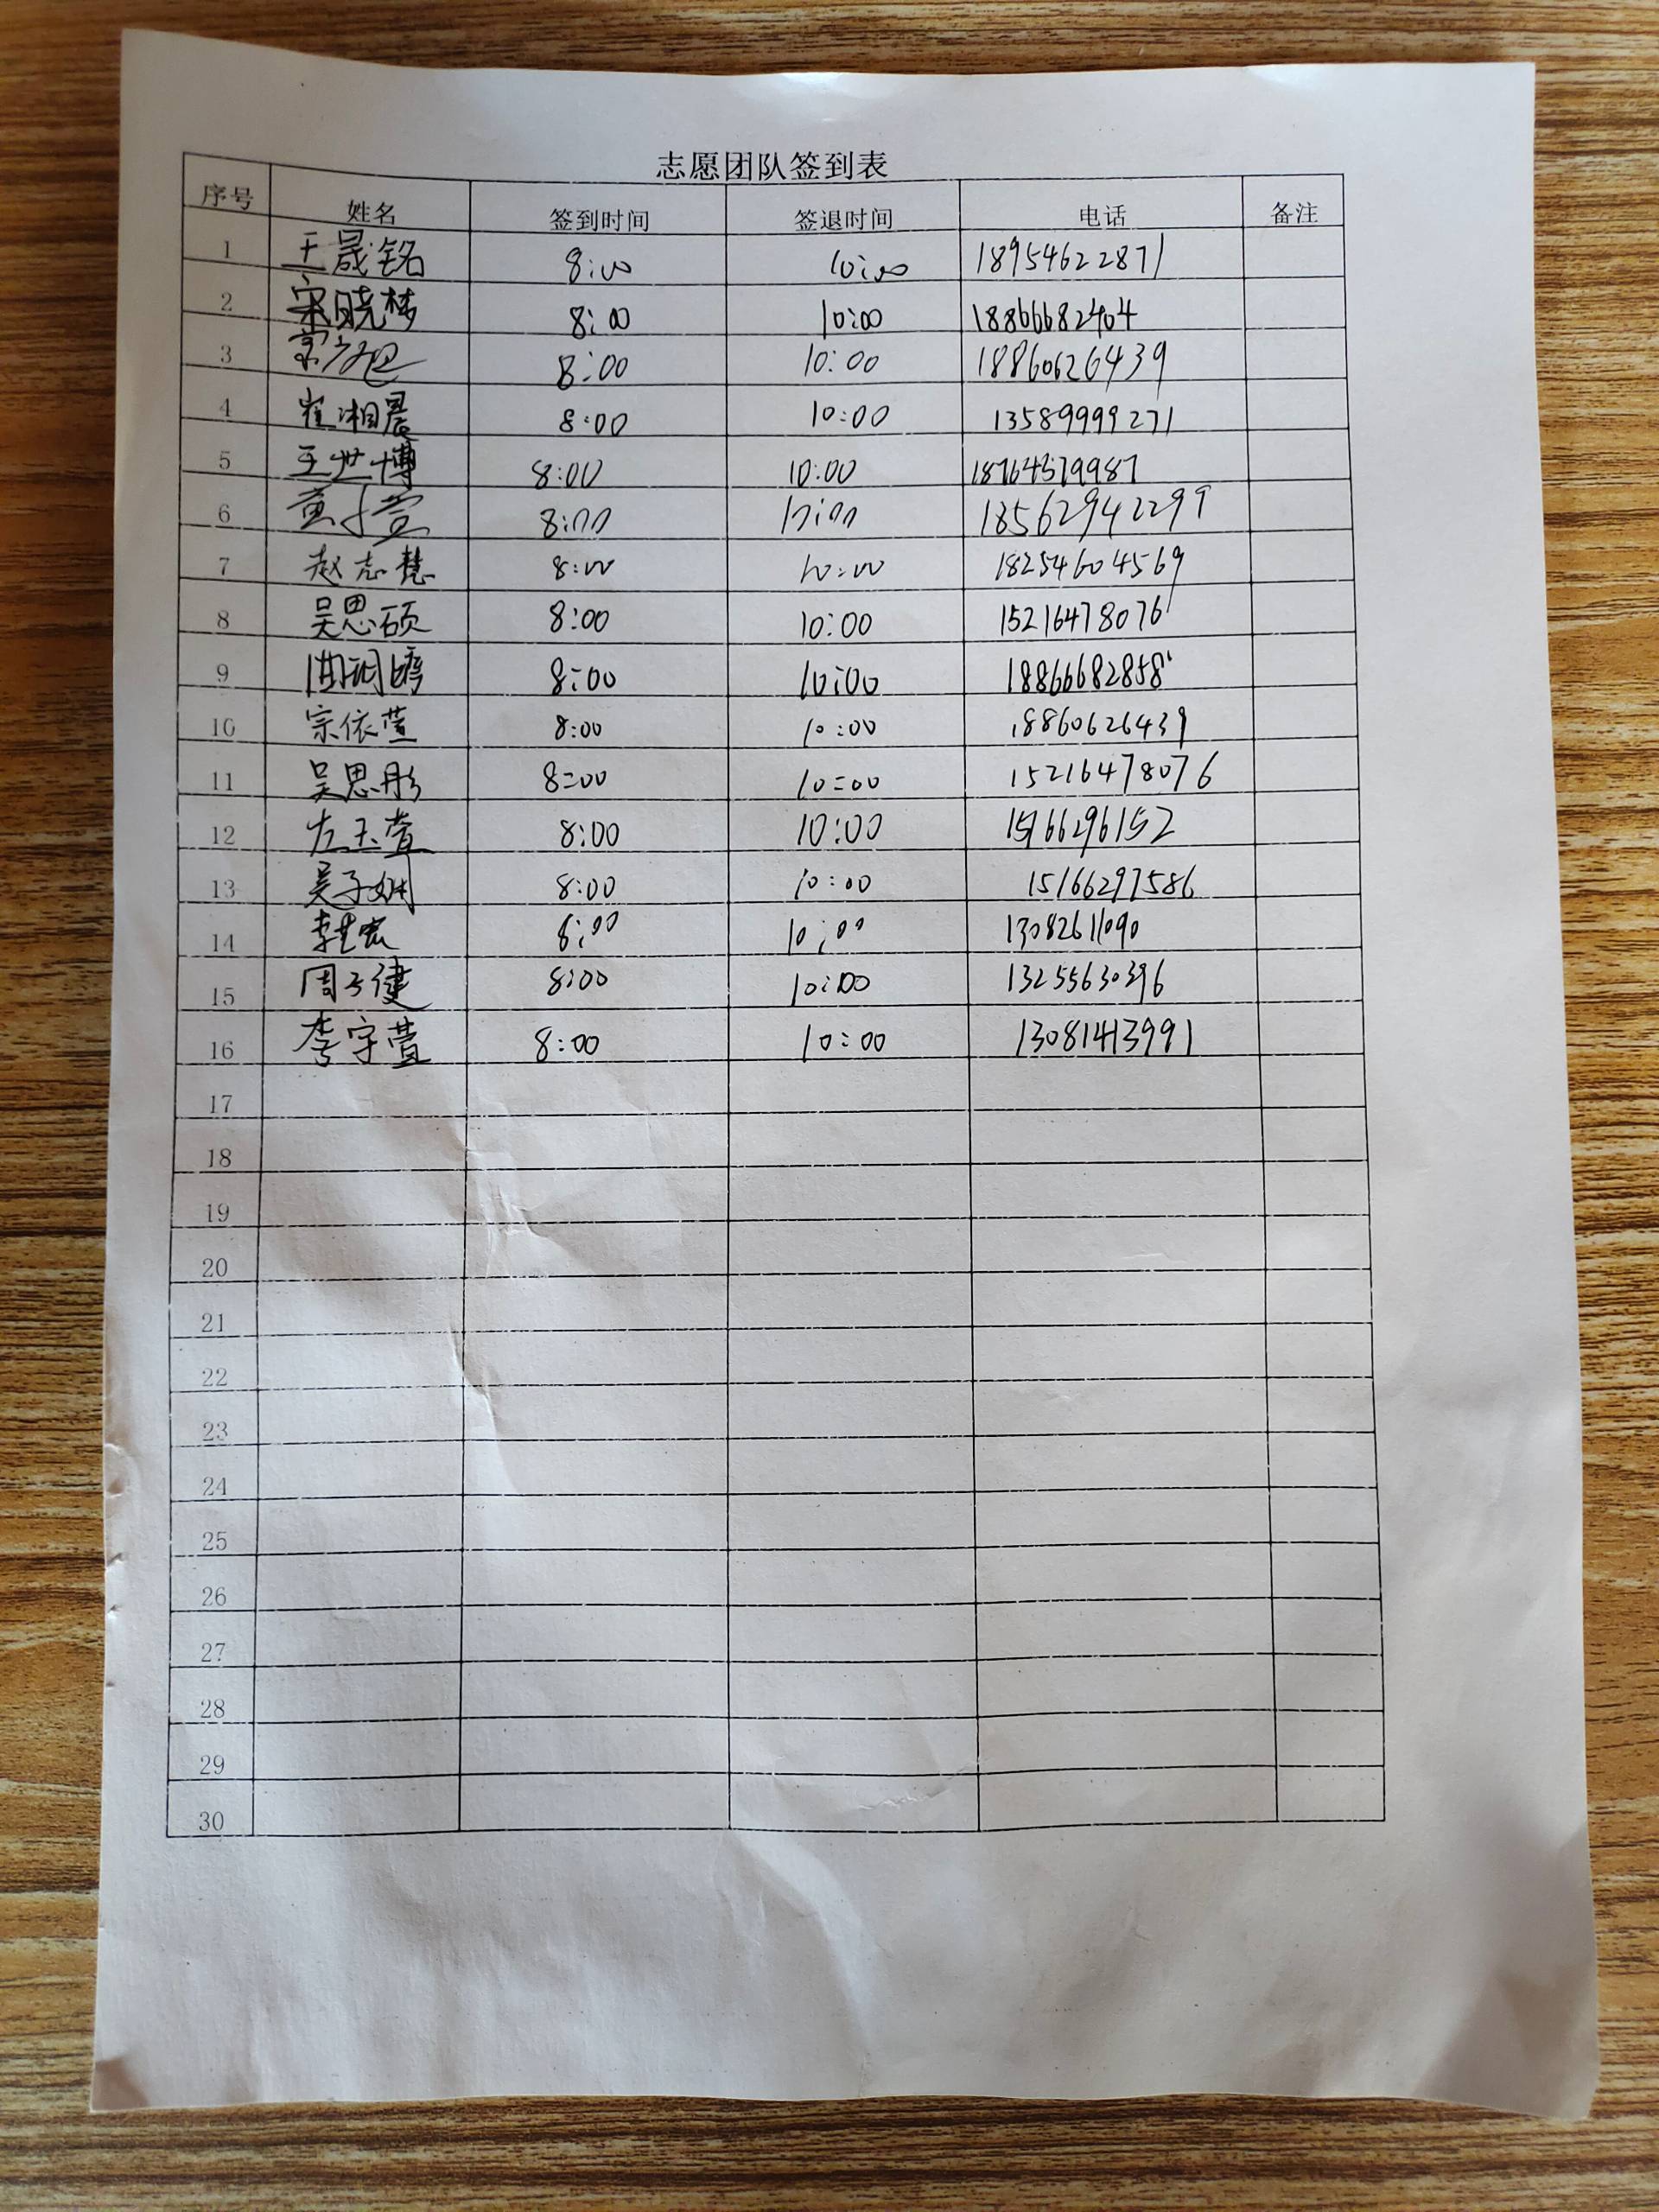 志愿团队签到表
序号 姓名 签到时间 签退时间 电话 备注
1 王晟铭 8:00 10:00 18954622871
2 宋晓梦 8:00 10:00 18866682404
3 8:00 10:00 18860626439
4 崔湘晨 8:00 10:00 13589999271
5 王世博 8:00 10:00 18764579987
6 黄子萱 8:00 10:00 18562942299
7 赵志慧 8:00 10:00 18254604569
8 吴思硕 8:00 10:00 15216478076
9 8:00 10:00 18866682858
10 宗依萱 8:00 10:00 18860626439
11 吴思彤 8:00 10:00 15216478076
12 左玉萱 8:00 10:00 15166296152
13 吴子娴 8:00 10:00 15166297586
14 8:00 10:00 13082611090
15 周子健 8:00 10:00 13255630396
16 李宇萱 8:00 10:00 13081413991
17
18
19
20
21
22
23
24
25
26
27
28
29
30